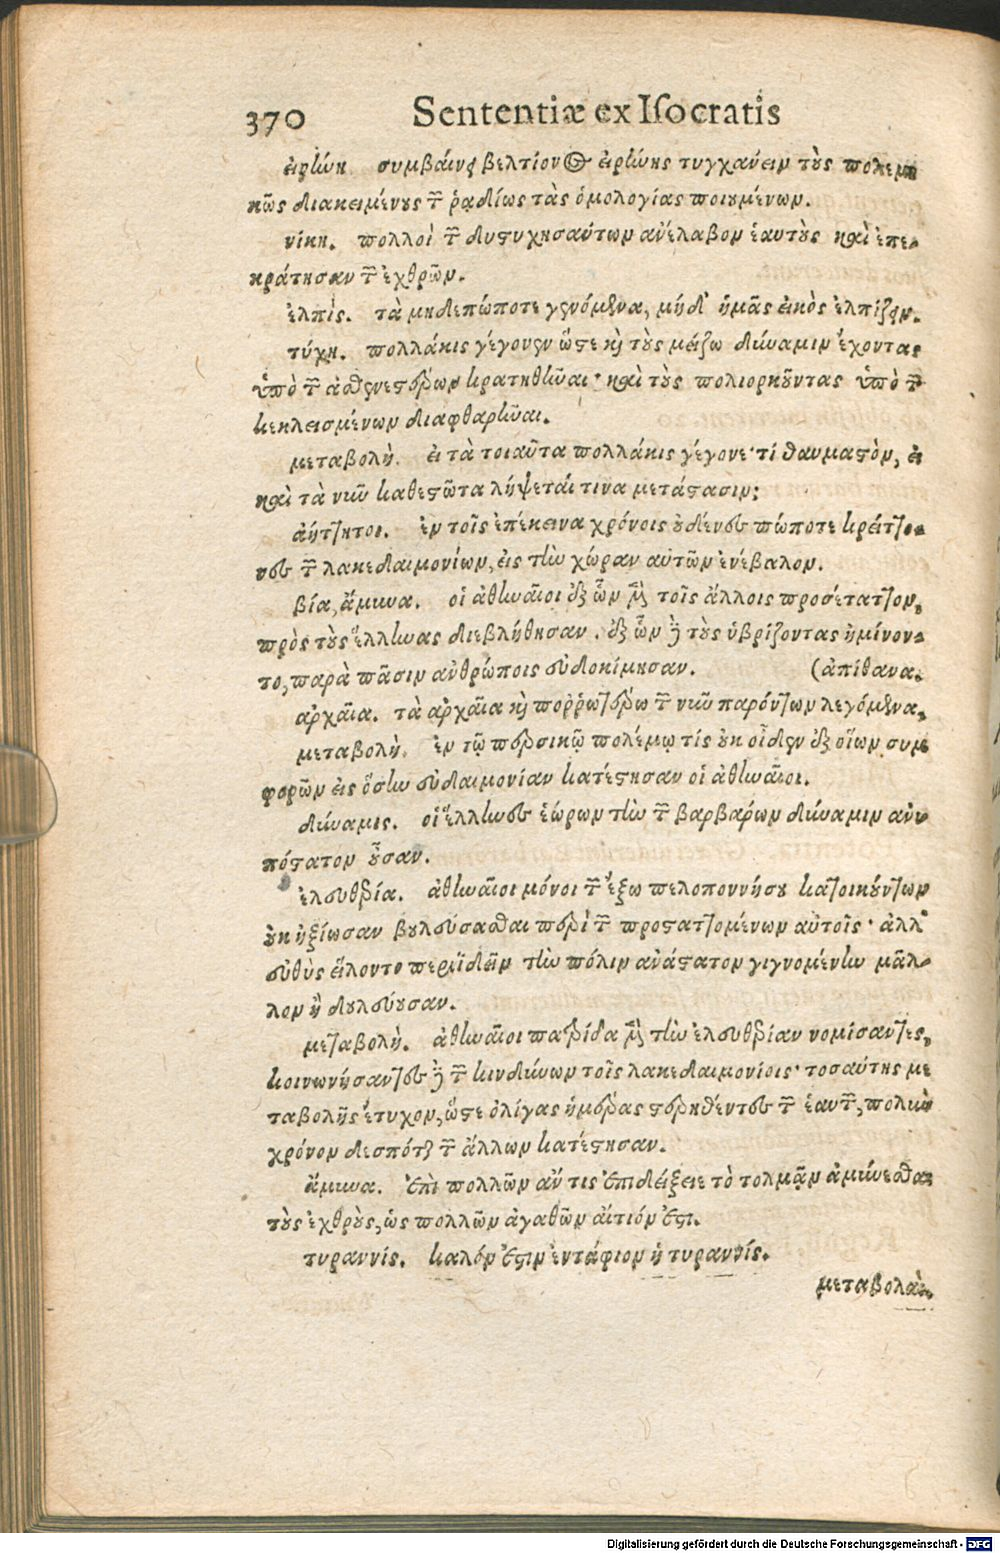 370 Sententiæ ex Isocratis
εἰρήνη. συμβαίνει βελτίονος εἰρήνης τυγχάνειν τοὺς πολεμι
κῶς διακειμένους τῶν ῥᾳδίως τὰς ὁμολογίας ποιουμένων.
νίκη. πολλοὶ τῶν δυστυχησάντων ἀνέλαβον ἑαυτοὺς καὶ ἐπε-
κράτησαν τῶν ἐχθρῶν.
ἐλπίς. τὰ μηδεπώποτε γενόμενα, μήδ' ἡμᾶς εἰκὸς ἐλπίζειν.
τύχη. πολλάκις γέγονεν ὥστε καὶ τοὺς μείζω δύναμιν ἔχοντας
ὑπὸ τῶν ἀσθενεστέρων κρατηθῆναι· καὶ τοὺς πολιορκοῦντας ὑπὸ τῶν
κεκλεισμένων διαφθαρῆναι.
μεταβολή. εἰ τὰ τοιαῦτα πολλάκις γέγονε· τί θαυμαστὸν, εἰ
καὶ τὰ νῦν καθεστῶτα λήψεταί τινα μετάστασιν;
ἀήττητοι. ἐν τοῖς ἐπέκεινα χρόνοις οὐδένες πώποτε κρείττο-
νες τῶν λακεδαιμονίων, εἰς τὴν χώραν αὐτῶν ἐνέβαλον.
βία, ἄμυνα. οἱ ἀθηναῖοι ἐξ ὧν μὲν τοῖς ἄλλοις προσέταττον,
πρὸς τοὺς ἕλληνας διεβλήθησαν. ἐξ ὧν δὲ τοὺς ὑβρίζοντας ἠμύνον-
το, παρὰ πᾶσιν ἀνθρώποις εὐδοκίμησαν. (ἀπίθανα.
ἀρχαῖα. τὰ ἀρχαῖα καὶ πορρωτέρω τῶν νῦν παρόντων λεγόμενα,
μεταβολή. ἐν τῷ περσικῷ πολέμῳ τίς οὐκ οἶδεν ἐξ οἵων συμ
φορῶν εἰς ὅσην εὐδαιμονίαν κατέστησαν οἱ ἀθηναῖοι.
δύναμις. οἱ ἕλληνες ἑώρων τὴν τῶν βαρβάρων δύναμιν ἀνυ
πόστατον οὖσαν.
ἐλευθερία. ἀθηναῖοι μόνοι τῶν ἔξω πελοποννήσου κατοικούντων
οὐκ ἠξίωσαν βουλεύσασθαι περὶ τῶν προσταττομένων αὐτοῖς· ἀλλ'
εὐθὺς εἵλοντο περιϊδεῖν τὴν πόλιν ἀνάστατον γιγνομένην μᾶλ-
λον ἢ δουλεύουσαν.
μεταβολή. ἀθηναῖοι πατρίδα μὲν τὴν ἐλευθερίαν νομίσαντες,
κοινωνήσαντες δὲ τῶν κινδύνων τοῖς λακεδαιμονίοις· τοσαύτης με
ταβολῆς ἔτυχον, ὥστε ὀλίγας ἡμέρας στερηθέντες τῶν ἑαυτῶν, πολὺν
χρόνον δεσπόται τῶν ἄλλων κατέστησαν.
ἄμυνα. ἐπὶ πολλῶν ἄν τις ἐπιδείξειε τὸ τολμᾷν ἀμύνεσθαι
τοὺς ἐχθροὺς, ὡς πολλῶν ἀγαθῶν αἴτιόν ἐστι.
τυραννίς. καλόν ἐστιν ἐντάφιον ἡ τυραννίς.
μεταβολαὶ.
Digitalisierung gefördert durch die Deutsche Forschungsgemeinschaft - DFG